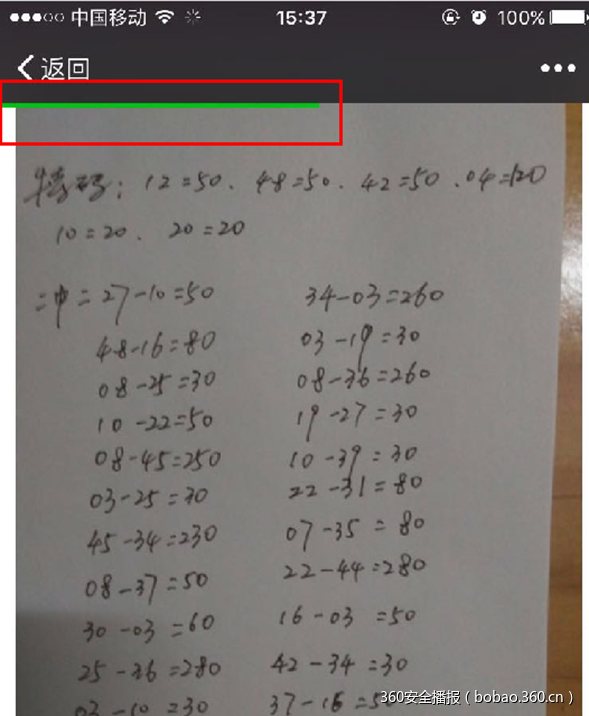 中国移动 15:37 100%
返回
特码: 12=50、48=50、42=50、04=120
10=20、20=20
二中二 27-10=50 34-03=260
48-16=80 03-19=30
08-25=30 08-36=260
10-22=50 19-27=30
08-45=250 10-39=30
03-25=30 22-31=80
45-34=230 07-35=80
08-37=50 22-44=280
30-03=60 16-03=50
25-36=280 42-34=30
03-10=30 37-16=50
360安全播报(bobao.360.cn)